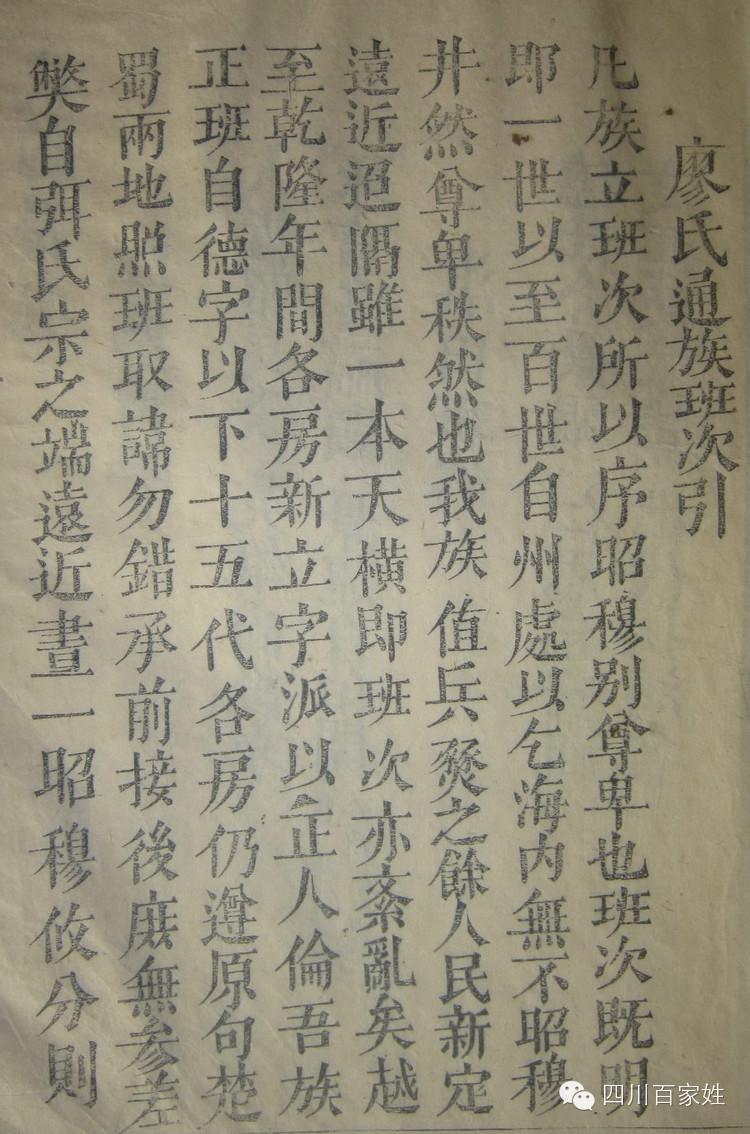 廖氏通族班次引
凡族立班次所以序昭穆别尊卑也班次既明
即一世以至百世自州處以乞海内無不昭穆
井然尊卑秩然也我族值兵燹之餘人民新定
遠近迢隔雖一本天横即班次亦紊亂矣越
至乾隆年間各房新立字派以正人倫吾族
正班自德字以下十五代各房仍遵原句楚
蜀兩地照班取諱勿錯承前接後庶無参差
獘自弭氏宗之端遠近畫一昭穆攸分則
四川百家姓